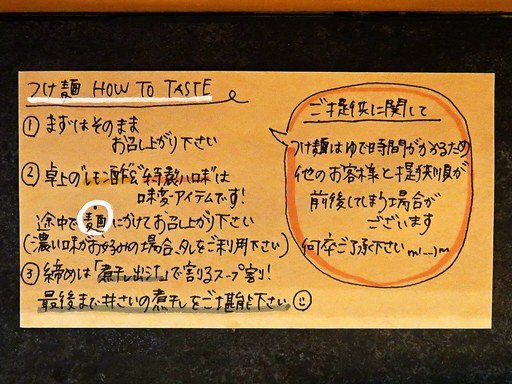 つけ麺 HOW TO TASTE
① まずはそのまま
お召し上がり下さい
② 卓上の"レモン酢"と"特製ハロ味"は
味変アイテムです!
途中で麺にかけてお召し上がり下さい
(濃い味がお好みの場合、タレをご利用下さい)
③ 締めは「煮干し出汁」で割るスープ割り!
最後まで丼さいの煮干しをご堪能下さい
ご提供に関して
つけ麺はゆで時間がかかるため
他のお客様と提供順が
前後してしまう場合が
ございます
何卒ご了承下さいm(__)m